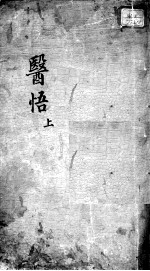 醫悟上